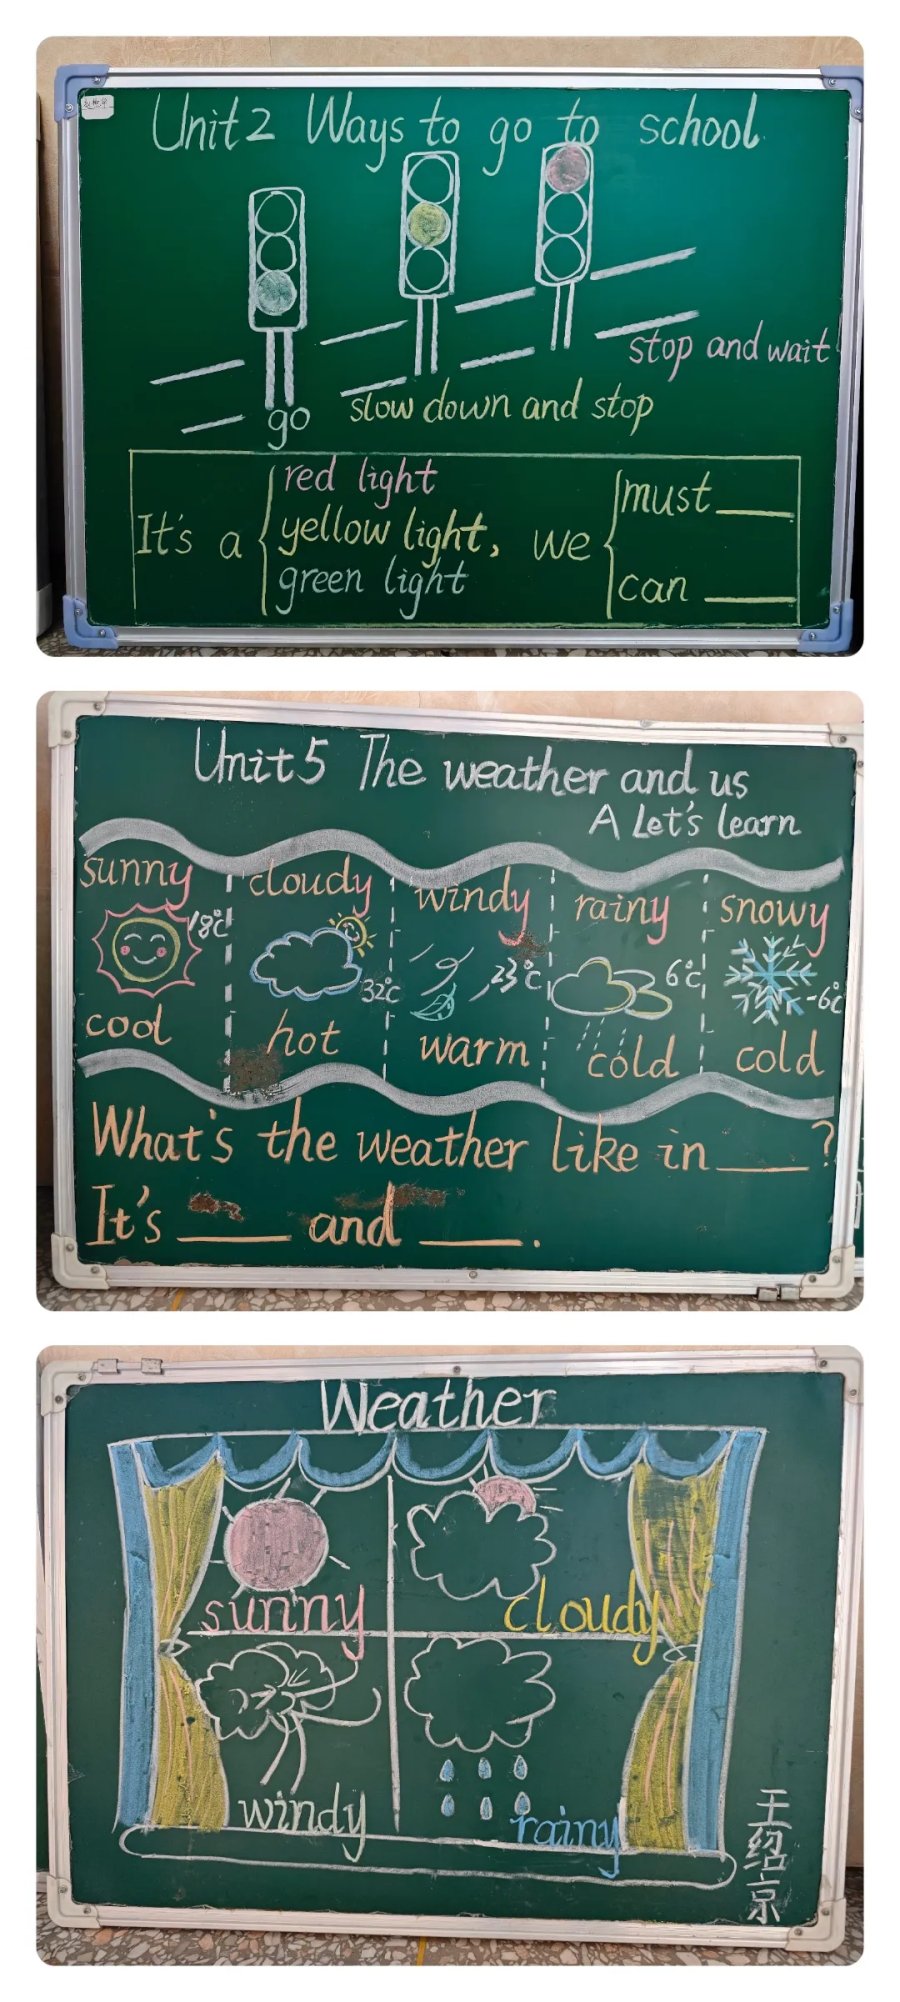 Unit2 Ways to go to school
stop and wait
slow down and stop
go
It's a
red light
yellow light,
green light
we
must
can
Unit5 The weather and us
A Let's learn
sunny cloudy windy rainy snowy
18℃ 32℃ 23℃ 6℃ -6℃
cool hot warm cold cold
What's the weather like in ____?
It's ____ and ____.
Weather
sunny
cloudy
windy
rainy
王绍京